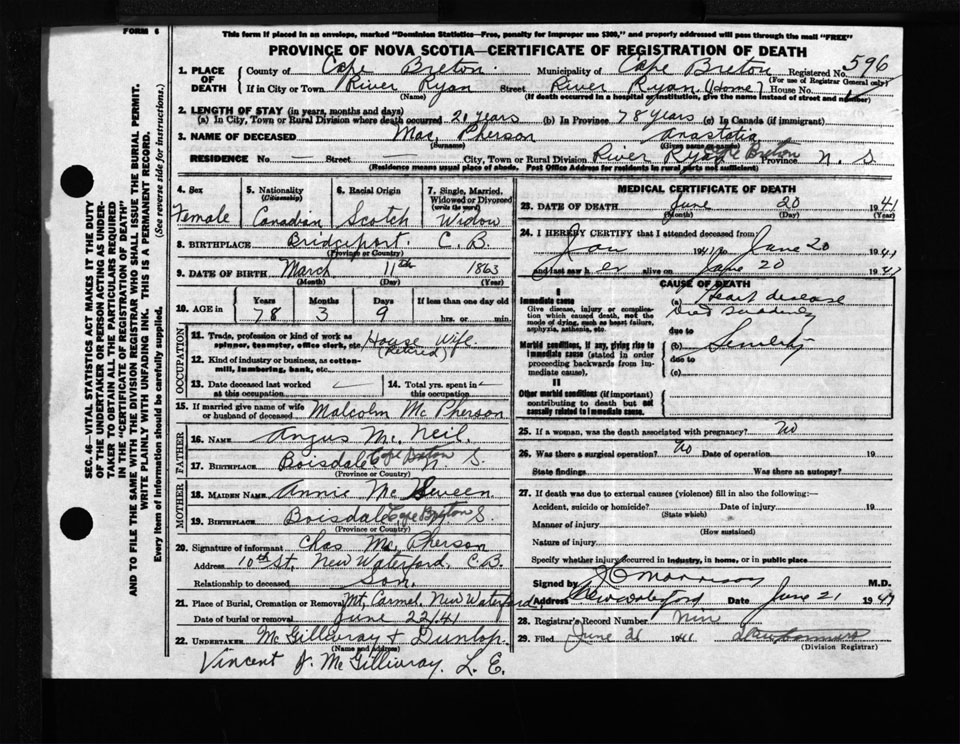 FORM 6
This form if placed in an envelope, marked "Dominion Statistics—Free, penalty for improper use $300," and properly addressed will pass through the mail "FREE"
PROVINCE OF NOVA SCOTIA—CERTIFICATE OF REGISTRATION OF DEATH
1. PLACE OF DEATH
County of Cape Breton Municipality of Cape Breton Registered No. 596
(For use of Registrar General only)
If in City or Town River Ryan Street River Ryan (Home) House No.
(Name) (If death occurred in a hospital or institution, give the name instead of street and number)
2. LENGTH OF STAY (in years, months and days)
(a) In City, Town or Rural Division where death occurred 21 years (b) In Province 78 years (c) In Canada (if immigrant)
3. NAME OF DECEASED Mac Pherson Anastatia
(Surname) (Given name or names)
RESIDENCE No. — Street — City, Town or Rural Division River Ryan Cape Breton Province N. S.
(Residence means usual place of abode. Post Office Address for residents in rural parts not sufficient)
4. Sex
Female
5. Nationality (Citizenship)
Canadian
6. Racial Origin
Scotch
7. Single, Married, Widowed or Divorced (write the word)
Widow
8. BIRTHPLACE Bridgeport. C. B.
(Province or Country)
9. DATE OF BIRTH March 11th 1863
(Month) (Day) (Year)
10. AGE in
Years Months Days If less than one day old
78 3 9 hrs. or min.
OCCUPATION
11. Trade, profession or kind of work as spinner, teamster, office clerk, etc. House Wife.
(Retired)
12. Kind of industry or business, as cotton-mill, lumbering, bank, etc.
13. Date deceased last worked at this occupation
14. Total yrs. spent in this occupation
15. If married give name of wife or husband of deceased Malcolm Mc Pherson
FATHER
16. NAME Angus Mc Neil.
17. BIRTHPLACE Boisdale Cape Breton N. S.
(Province or Country)
MOTHER
18. MAIDEN NAME Annie Mc Sween
19. BIRTHPLACE Boisdale Cape Breton S.
(Province or Country)
20. Signature of informant Chas Mc Pherson
Address 10th St. New Waterford, C.B.
Relationship to deceased Son.
21. Place of Burial, Cremation or Removal Mt. Carmel, New Waterford
Date of burial or removal June 22/41
22. UNDERTAKER Mc Gillivray & Dunlop.
(Name and Address)
Vincent J. Mc Gillivray. L. E.
MEDICAL CERTIFICATE OF DEATH
23. DATE OF DEATH June 20 1941
(Month) (Day) (Year)
24. I HEREBY CERTIFY that I attended deceased from
Jan 1941 to June 20 1941
and last saw h er alive on June 20 1941
CAUSE OF DEATH
I
Immediate cause
Give disease, injury or complication which caused death, not the mode of dying, such as heart failure, asphyxia, asthenia, etc.
(a) Heart disease
Died suddenly
due to
Morbid conditions, if any, giving rise to immediate cause (stated in order proceeding backwards from immediate cause).
(b) Senility
due to
(c)
II
Other morbid conditions (if important) contributing to death but not causally related to immediate cause.
25. If a woman, was the death associated with pregnancy? No
26. Was there a surgical operation? No Date of operation 19
State findings Was there an autopsy?
27. If death was due to external causes (violence) fill in also the following:—
Accident, suicide or homicide? Date of injury 19
(State which)
Manner of injury
(How sustained)
Nature of injury
Specify whether injury occurred in industry, in home, or in public place
Signed by J C Morrison M.D.
Address New Waterford Date June 21 1941
28. Registrar's Record Number Nin
29. Filed June 21 1941
(Division Registrar)
SEC. 46—VITAL STATISTICS ACT MAKES IT THE DUTY
OF THE UNDERTAKER OR PERSON ACTING AS UNDER-
TAKER TO OBTAIN ALL THE PARTICULARS REQUIRED
IN THE "CERTIFICATE OF REGISTRATION OF DEATH"
AND TO FILE THE SAME WITH THE DIVISION REGISTRAR WHO SHALL ISSUE THE BURIAL PERMIT.
WRITE PLAINLY WITH UNFADING INK. THIS IS A PERMANENT RECORD.
Every item of information should be carefully supplied. (See reverse side for instructions.)